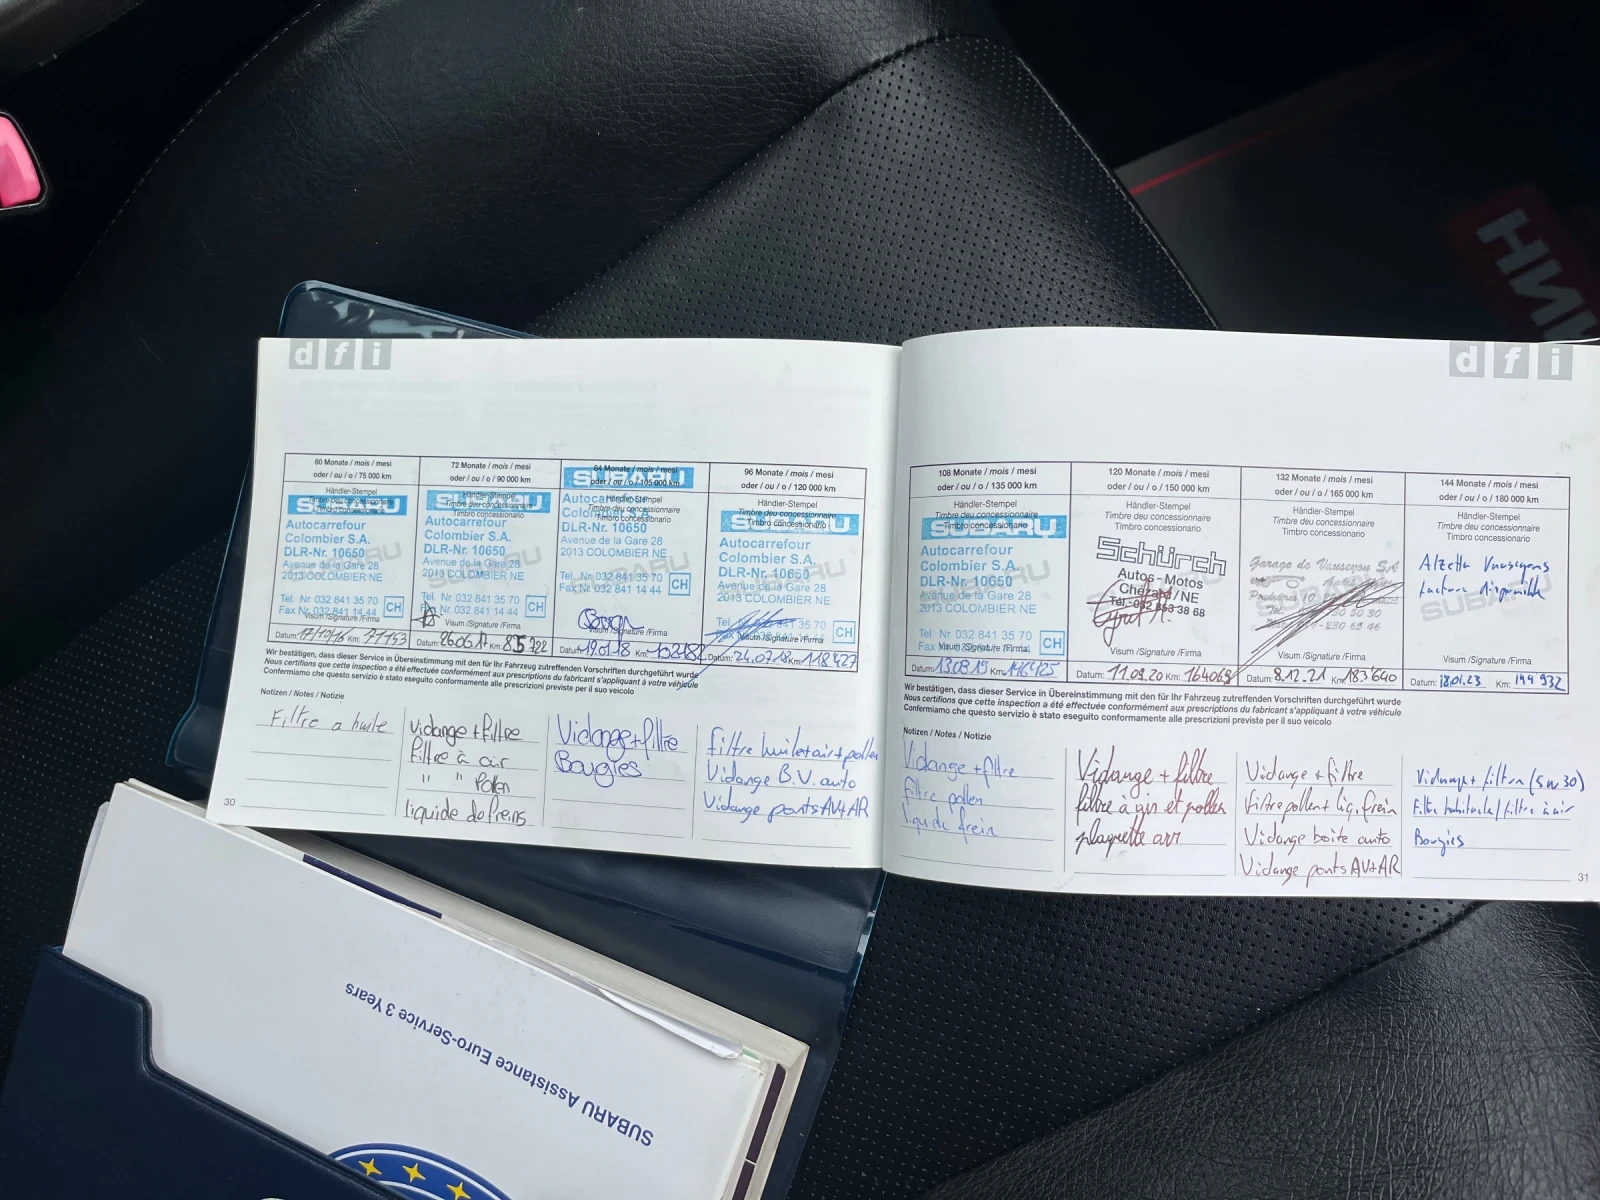 d f i
60 Monate / mois / mesi
oder / ou / o / 75 000 km
Händler-Stempel
Timbre du concessionnaire
Timbro concessionario
SUBARU
Autocarrefour
Colombier S.A.
DLR-Nr. 10650
Avenue de la Gare 28
2013 COLOMBIER NE
Tel. Nr 032 841 35 70
Fax Nr 032 841 14 44
CH
Visum /Signature /Firma
Datum: 17/10/16 Km: 71153
72 Monate / mois / mesi
oder / ou / o / 90 000 km
Händler-Stempel
Timbre deu concessionnaire
Timbro concessionario
SUBARU
Autocarrefour
Colombier S.A.
DLR-Nr. 10650
Avenue de la Gare 28
2013 COLOMBIER NE
Tel. Nr 032 841 35 70
Fax Nr 032 841 14 44
CH
Visum /Signature /Firma
Datum: 26.06.17 Km:
84 Monate / mois / mesi
oder / ou / o / 105 000 km
SUBARU
Händler-Stempel
Timbre deu concessionnaire
Timbro concessionario
Autocarrefour
Colombier S.A.
DLR-Nr. 10650
Avenue de la Gare 28
2013 COLOMBIER NE
Tel. Nr 032 841 35 70
Fax Nr 032 841 14 44
CH
Visum /Signature /Firma
Datum: 19.01.18 Km:
96 Monate / mois / mesi
oder / ou / o / 120 000 km
Händler-Stempel
Timbre deu concessionnaire
Timbro concessionario
SUBARU
Autocarrefour
Colombier S.A.
DLR-Nr. 10650
Avenue de la Gare 28
2013 COLOMBIER NE
35 70
CH
Visum /Signature /Firma
Datum: 24.07.18 Km: 118427
Wir bestätigen, dass dieser Service in Übereinstimmung mit den für Ihr Fahrzeug zutreffenden Vorschriften durchgeführt wurde
Nous certifions que cette inspection a été effectuée conformément aux prescriptions du fabricant s'appliquant à votre véhicule
Confermiamo che questo servizio è stato eseguito conformemente alle prescrizioni previste per il suo veicolo
Notizen / Notes / Notizie
Filtre a huile
Vidange + filtre
filtre à air
" " Pollen
liquide de freins
Vidange + filtre
Bougies
filtre huile + air + pollen
Vidange B.V. auto
Vidange ponts AV + AR
30
d f i
108 Monate / mois / mesi
oder / ou / o / 135 000 km
Händler-Stempel
Timbre deu concessionnaire
Timbro concessionario
SUBARU
Autocarrefour
Colombier S.A.
DLR-Nr. 10650
Avenue de la Gare 28
2013 COLOMBIER NE
Tel. Nr 032 841 35 70
CH
Visum /Signature /Firma
Datum: 13.08.19 Km: 146425
120 Monate / mois / mesi
oder / ou / o / 150 000 km
Händler-Stempel
Timbre deu concessionnaire
Timbro concessionario
Schürch
Autos - Motos
Chézard / NE
Tél. 032 853 38 68
Datum: 11.09.20 Km: 164069
132 Monate / mois / mesi
oder / ou / o / 165 000 km
Händler-Stempel
Timbre deu concessionnaire
Timbro concessionario
Garage de Vauseyon SA
Visum /Signature /Firma
Datum: 8.12.21 Km: 183'640
144 Monate / mois / mesi
oder / ou / o / 180 000 km
Händler-Stempel
Timbre deu concessionnaire
Timbro concessionario
Alzetta Vauseyons
facture disponible
SUBARU
Visum /Signature /Firma
Datum: 18.01.23 Km: 199'932
Wir bestätigen, dass dieser Service in Übereinstimmung mit den für Ihr Fahrzeug zutreffenden Vorschriften durchgeführt wurde
Nous certifions que cette inspection a été effectuée conformément aux prescriptions du fabricant s'appliquant à votre véhicule
Confermiamo che questo servizio è stato eseguito conformemente alle prescrizioni previste per il suo veicolo
Notizen / Notes / Notizie
Vidange + filtre
filtre pollen
liquide frein
Vidange + filtre
filtre à air et pollen
plaquette arr
Vidange + filtre
Filtre pollen + liq. frein
Vidange boite auto
Vidange ponts AV + AR
Vidange + filtre (5w30)
Filtre habitacle / filtre à air
Bougies
31
SUBARU Assistance Euro-Service 3 Years